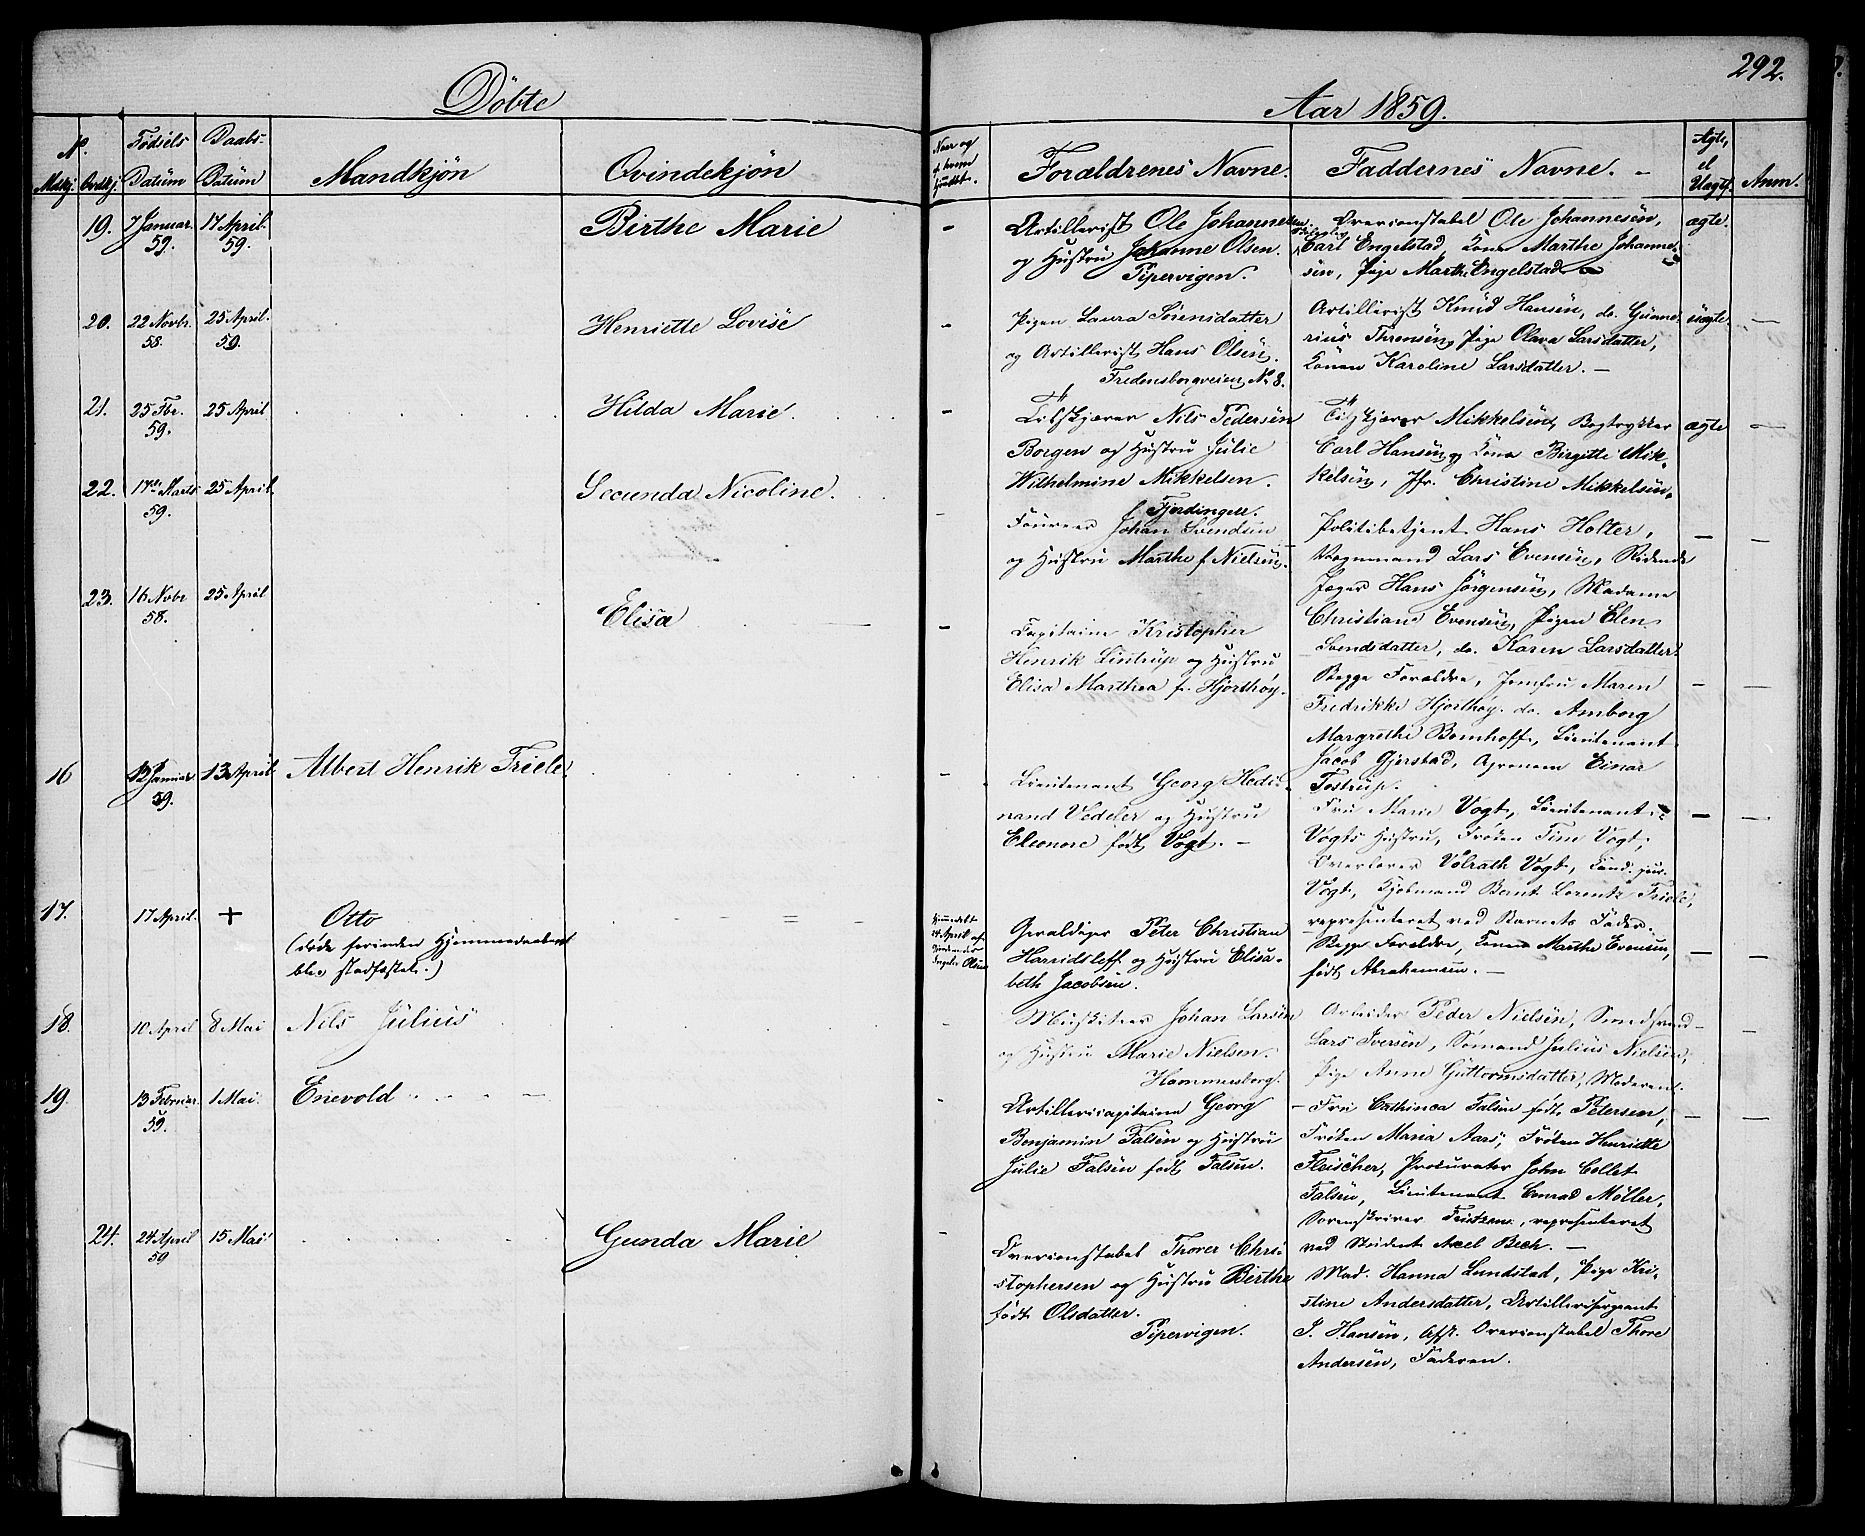 292.
Döbte
Aar 1859.
N.
Mdkj. Qvdkj.
Fødsels Datum
Daabs- Datum
Mandkjön
Qvindekjön
Naar og af hvem hjmdbt.
Forældrenes Navne.
Faddernes Navne. -
Ægte, el Uægte
Anm.
19. 7 Januar 59. 17 April 59. Birthe Marie -
Artillerist Ole Johannesen
og Hustru Johanne Olsen.
Pipervigen.
Overconstabel Ole Johannesen,
Carl Engelstad, Kone Marthe Johanne-
sen, Pige Marth. Engelstad
ægte.
20. 22 Novbr. 58. 25 April. 59. Henriette Lovise -
Pigen Laura Sörensdatter
og Artillerist Hans Olsen.
Fredensborgveien No 8.
Artillerist Knud Hansen, do. Gunne-
rius Thronsen, Pige Olava Larsdatter,
Konen Karoline Larsdatter. -
uægte. -
21. 25 Fbr. 59. 25 April Hilda Marie. -
Nils Pedersen
Borgen og Hustru Julie
Wilhelmine Mikkelsen.
Fjerdingen.
Mikkelsen, Bogtrykker
Carl Hansen, Kone Birgitte Mik-
kelsen, Jfr. Christine Mikkelsen.
ægte -
22. 17de Marts 59. 25 April. Secunda Nicoline. -
Foureer Johan Svendsen
og Hustru Marthe f Nielsen.
Politibetjent Hans Holter,
Vognmand Lars Evensen, Ridende
Jæger Hans Jörgensen, Madame
Christiane Evensen, Pigen Elen
Svendsdatter, do. Karen Larsdatter.
- -
23. 16 Novbr 58. 25 April Elisa -
Capitaine Kristopher
Henrik Lintrup og Hustru
Elisa Marthea f. Hjorthøy.
Begge Forældre, Jomfru Maren
Fredrikke Hjorthøy. do. Amborg
Margrethe Bomhoff, Lieutenant
Jacob Gjerstad, Agronom Einar
Tostrup.
- -
16 12 Januar 59. 13 April Albert Henrik Friele. -
Lieutenant Georg Hedi-
nand Vedeler og Hustru
Eleonore født Vogt. -
Fru Marie Vogt, Lieutenant
Vogts Hustru, Frøken Tim Vogt,
Overlærer Volrath Vogt, Cand. jur.
Vogt, Kjøbmand Bernt Lorentz Friele,
representeret ved Barnets Fader.
- -
17. 17 April. + Otto
(døde forinden Hjemmedaaben
blev stadfæstet.)
Hjmedøbt
24 April af
Jordemoder
Olsen
Peter Christian
Harridsleff og Hustru Elisa-
beth Jacobsen.
Begge Forældre, Konen Marthe Evensen,
født Abrahamsen. -
- -
18. 10 April 8 Mai Nils Julius -
Muskiteer Johan Larsen
og Hustru Marie Nielsen.
Hammersborg.
Arbeider Peder Nielsen, Smedsvend
Lars Iversen, Sømand Julius Nielsen,
Pige Anne Guttormsdatter, Moderen.
19. 13 Februar 59. 1 Mai. Enevold -
Artillericapitaine Georg
Benjamin Falsen og Hustru
Julie Falsen født Falsen.
- Fru Cathinca Falsen født Petersen,
Frøken Maria Aars, Frøken Henriette
Fleischer, Procurator John Collet
Falsen, Lieutenant Conrad Møller,
Sorenskriver, representeret
ved Student Axel Bech. -
- -
24. 24 April 59 15 Mai Gunda Marie -
Overconstabel Thorer Chri-
stophersen og Hustru Birthe
født Olsdatter.
Pipervigen.
Mad. Hanna Lundstad, Pige Kri-
stine Andersdatter, Artillerisergeant
P. Hansen, Afsk. Overconstabel Thore
Andersen, Faderen.